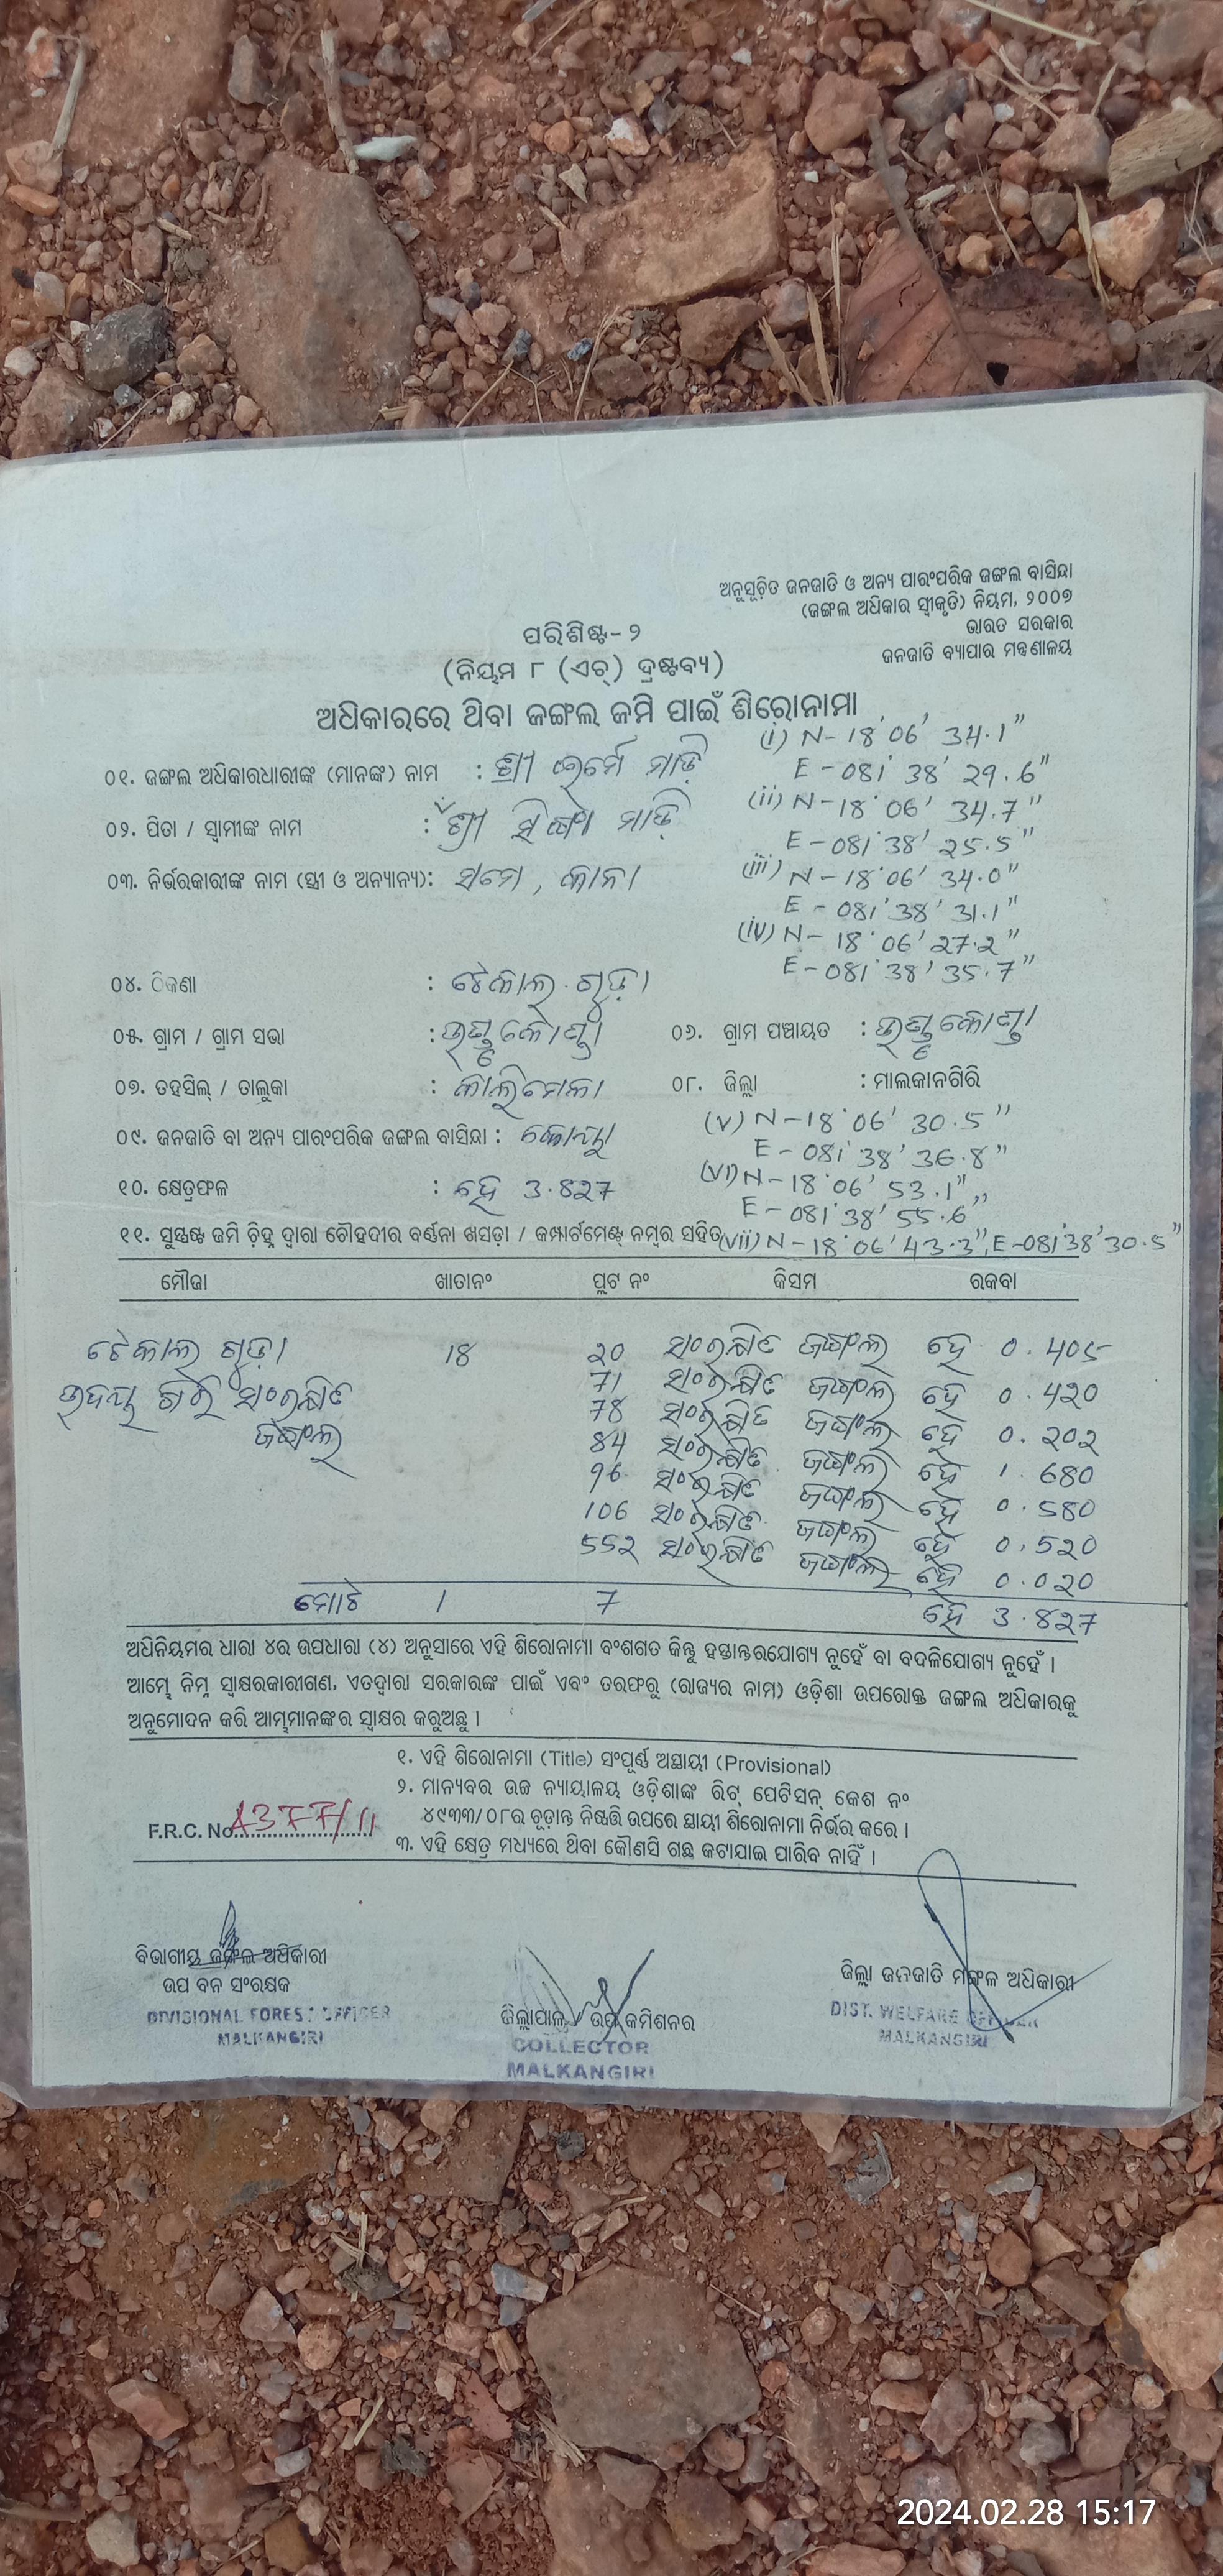 ଅନୁସୂଚିତ ଜନଜାତି ଓ ଅନ୍ୟ ପାରଂପରିକ ଜଙ୍ଗଲ ବାସିନ୍ଦା
(ଜଙ୍ଗଲ ଅଧିକାର ସ୍ୱୀକୃତି) ନିୟମ, ୨୦୦୭
ଭାରତ ସରକାର
ଜନଜାତି ବ୍ୟାପାର ମନ୍ତ୍ରଣାଳୟ
ପରିଶିଷ୍ଟ-୨
(ନିୟମ ୮ (ଏଚ୍) ଦ୍ରଷ୍ଟବ୍ୟ)
ଅଧିକାରରେ ଥିବା ଜଙ୍ଗଲ ଜମି ପାଇଁ ଶିରୋନାମା
(i) N-18°06' 34.1"
E-081°38' 29.6"
୦୧. ଜଙ୍ଗଲ ଅଧିକାରଧାରୀଙ୍କ (ମାନଙ୍କ) ନାମ : ଶ୍ରୀ ମାଡ଼ି
(ii) N-18°06' 34.7"
E-081°38' 25.5"
୦୨. ପିତା / ସ୍ୱାମୀଙ୍କ ନାମ : ଶ୍ରୀ ମାଡ଼ି
(iii) N-18°06' 34.0"
E-081°38' 31.1"
୦୩. ନିର୍ଭରକାରୀଙ୍କ ନାମ (ସ୍ତ୍ରୀ ଓ ଅନ୍ୟାନ୍ୟ): ସମେ, କାନା
(iv) N-18°06' 27.2"
E-081°38' 35.7"
୦୪. ଠିକଣା : ଟେକାଲ ଗୁଡ଼ା
୦୫. ଗ୍ରାମ / ଗ୍ରାମ ସଭା : ୦୬. ଗ୍ରାମ ପଞ୍ଚାୟତ :
୦୭. ତହସିଲ୍ / ତାଲୁକା : କାଲିମେଳା ୦୮. ଜିଲ୍ଲା : ମାଲକାନଗିରି
(v) N-18°06' 30.5"
E-081°38' 36.8"
୦୯. ଜନଜାତି ବା ଅନ୍ୟ ପାରଂପରିକ ଜଙ୍ଗଲ ବାସିନ୍ଦା : କୋୟା
(vi) N-18°06' 53.1"
E-081°38' 55.6"
୧୦. କ୍ଷେତ୍ରଫଳ : ହେ 3.827
୧୧. ସୁସ୍ପଷ୍ଟ ଜମି ଚିହ୍ନ ଦ୍ୱାରା ଚୌହଦୀର ବର୍ଣ୍ଣନା ଖସଡ଼ା / କମ୍ପାର୍ଟମେଣ୍ଟ୍ ନମ୍ବର ସହିତ (vii) N-18°06' 43.3", E-081°38' 30.5"
ମୌଜା ଖାତାନଂ ପ୍ଲଟ ନଂ କିସମ ରକବା
ଟେକାଲ ଗୁଡ଼ା 18 20 ସଂରକ୍ଷିତ ଜଙ୍ଗଲ ହେ 0.405
ଉଦୟ ଗିରି ସଂରକ୍ଷିତ 71 ସଂରକ୍ଷିତ ଜଙ୍ଗଲ ହେ 0.420
ଜଙ୍ଗଲ 78 ସଂରକ୍ଷିତ ଜଙ୍ଗଲ ହେ 0.202
84 ସଂରକ୍ଷିତ ଜଙ୍ଗଲ ହେ 1.680
96 ସଂରକ୍ଷିତ ଜଙ୍ଗଲ ହେ 0.580
106 ସଂରକ୍ଷିତ ଜଙ୍ଗଲ ହେ 0.520
552 ସଂରକ୍ଷିତ ଜଙ୍ଗଲ ହେ 0.020
ମୋଟ 1 7 ହେ 3.827
ଅଧିନିୟମର ଧାରା ୪ର ଉପଧାରା (୪) ଅନୁସାରେ ଏହି ଶିରୋନାମା ବଂଶଗତ କିନ୍ତୁ ହସ୍ତାନ୍ତରଯୋଗ୍ୟ ନୁହେଁ ବା ବଦଳିଯୋଗ୍ୟ ନୁହେଁ ।
ଆମ୍ଭେ ନିମ୍ନ ସ୍ୱାକ୍ଷରକାରୀଗଣ, ଏତଦ୍ୱାରା ସରକାରଙ୍କ ପାଇଁ ଏବଂ ତରଫରୁ (ରାଜ୍ୟର ନାମ) ଓଡ଼ିଶା ଉପରୋକ୍ତ ଜଙ୍ଗଲ ଅଧିକାରକୁ
ଅନୁମୋଦନ କରି ଆମ୍ଭମାନଙ୍କର ସ୍ୱାକ୍ଷର କରୁଅଛୁ ।
୧. ଏହି ଶିରୋନାମା (Title) ସଂପୂର୍ଣ୍ଣ ଅସ୍ଥାୟୀ (Provisional)
୨. ମାନ୍ୟବର ଉଚ୍ଚ ନ୍ୟାୟାଳୟ ଓଡ଼ିଶାଙ୍କ ରିଟ୍ ପେଟିସନ୍ କେଶ ନଂ
୪୯୩୩/୦୮ର ଚୂଡ଼ାନ୍ତ ନିଷ୍ପତ୍ତି ଉପରେ ସ୍ଥାୟୀ ଶିରୋନାମା ନିର୍ଭର କରେ ।
F.R.C. No. A377/11
୩. ଏହି କ୍ଷେତ୍ର ମଧ୍ୟରେ ଥିବା କୌଣସି ଗଛ କଟାଯାଇ ପାରିବ ନାହିଁ ।
ବିଭାଗୀୟ ଜଙ୍ଗଲ ଅଧିକାରୀ
ଉପ ବନ ସଂରକ୍ଷକ
DIVISIONAL FOREST OFFICER
MALKANGIRI
ଜିଲ୍ଲାପାଳ / ଉପ କମିଶନର
COLLECTOR
MALKANGIRI
ଜିଲ୍ଲା ଜନଜାତି ମଙ୍ଗଳ ଅଧିକାରୀ
DIST. WELFARE OFFICER
MALKANGIRI
2024.02.28 15:17